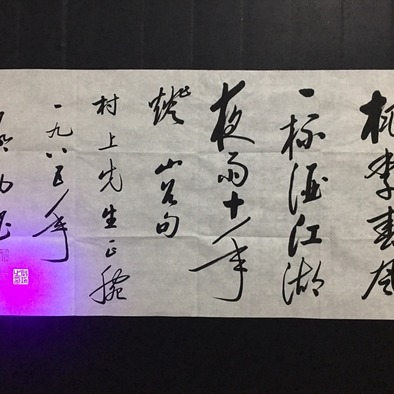 桃李春风
一杯酒江湖
夜雨十年
燈 山谷句
村上先生正腕
一九八五年